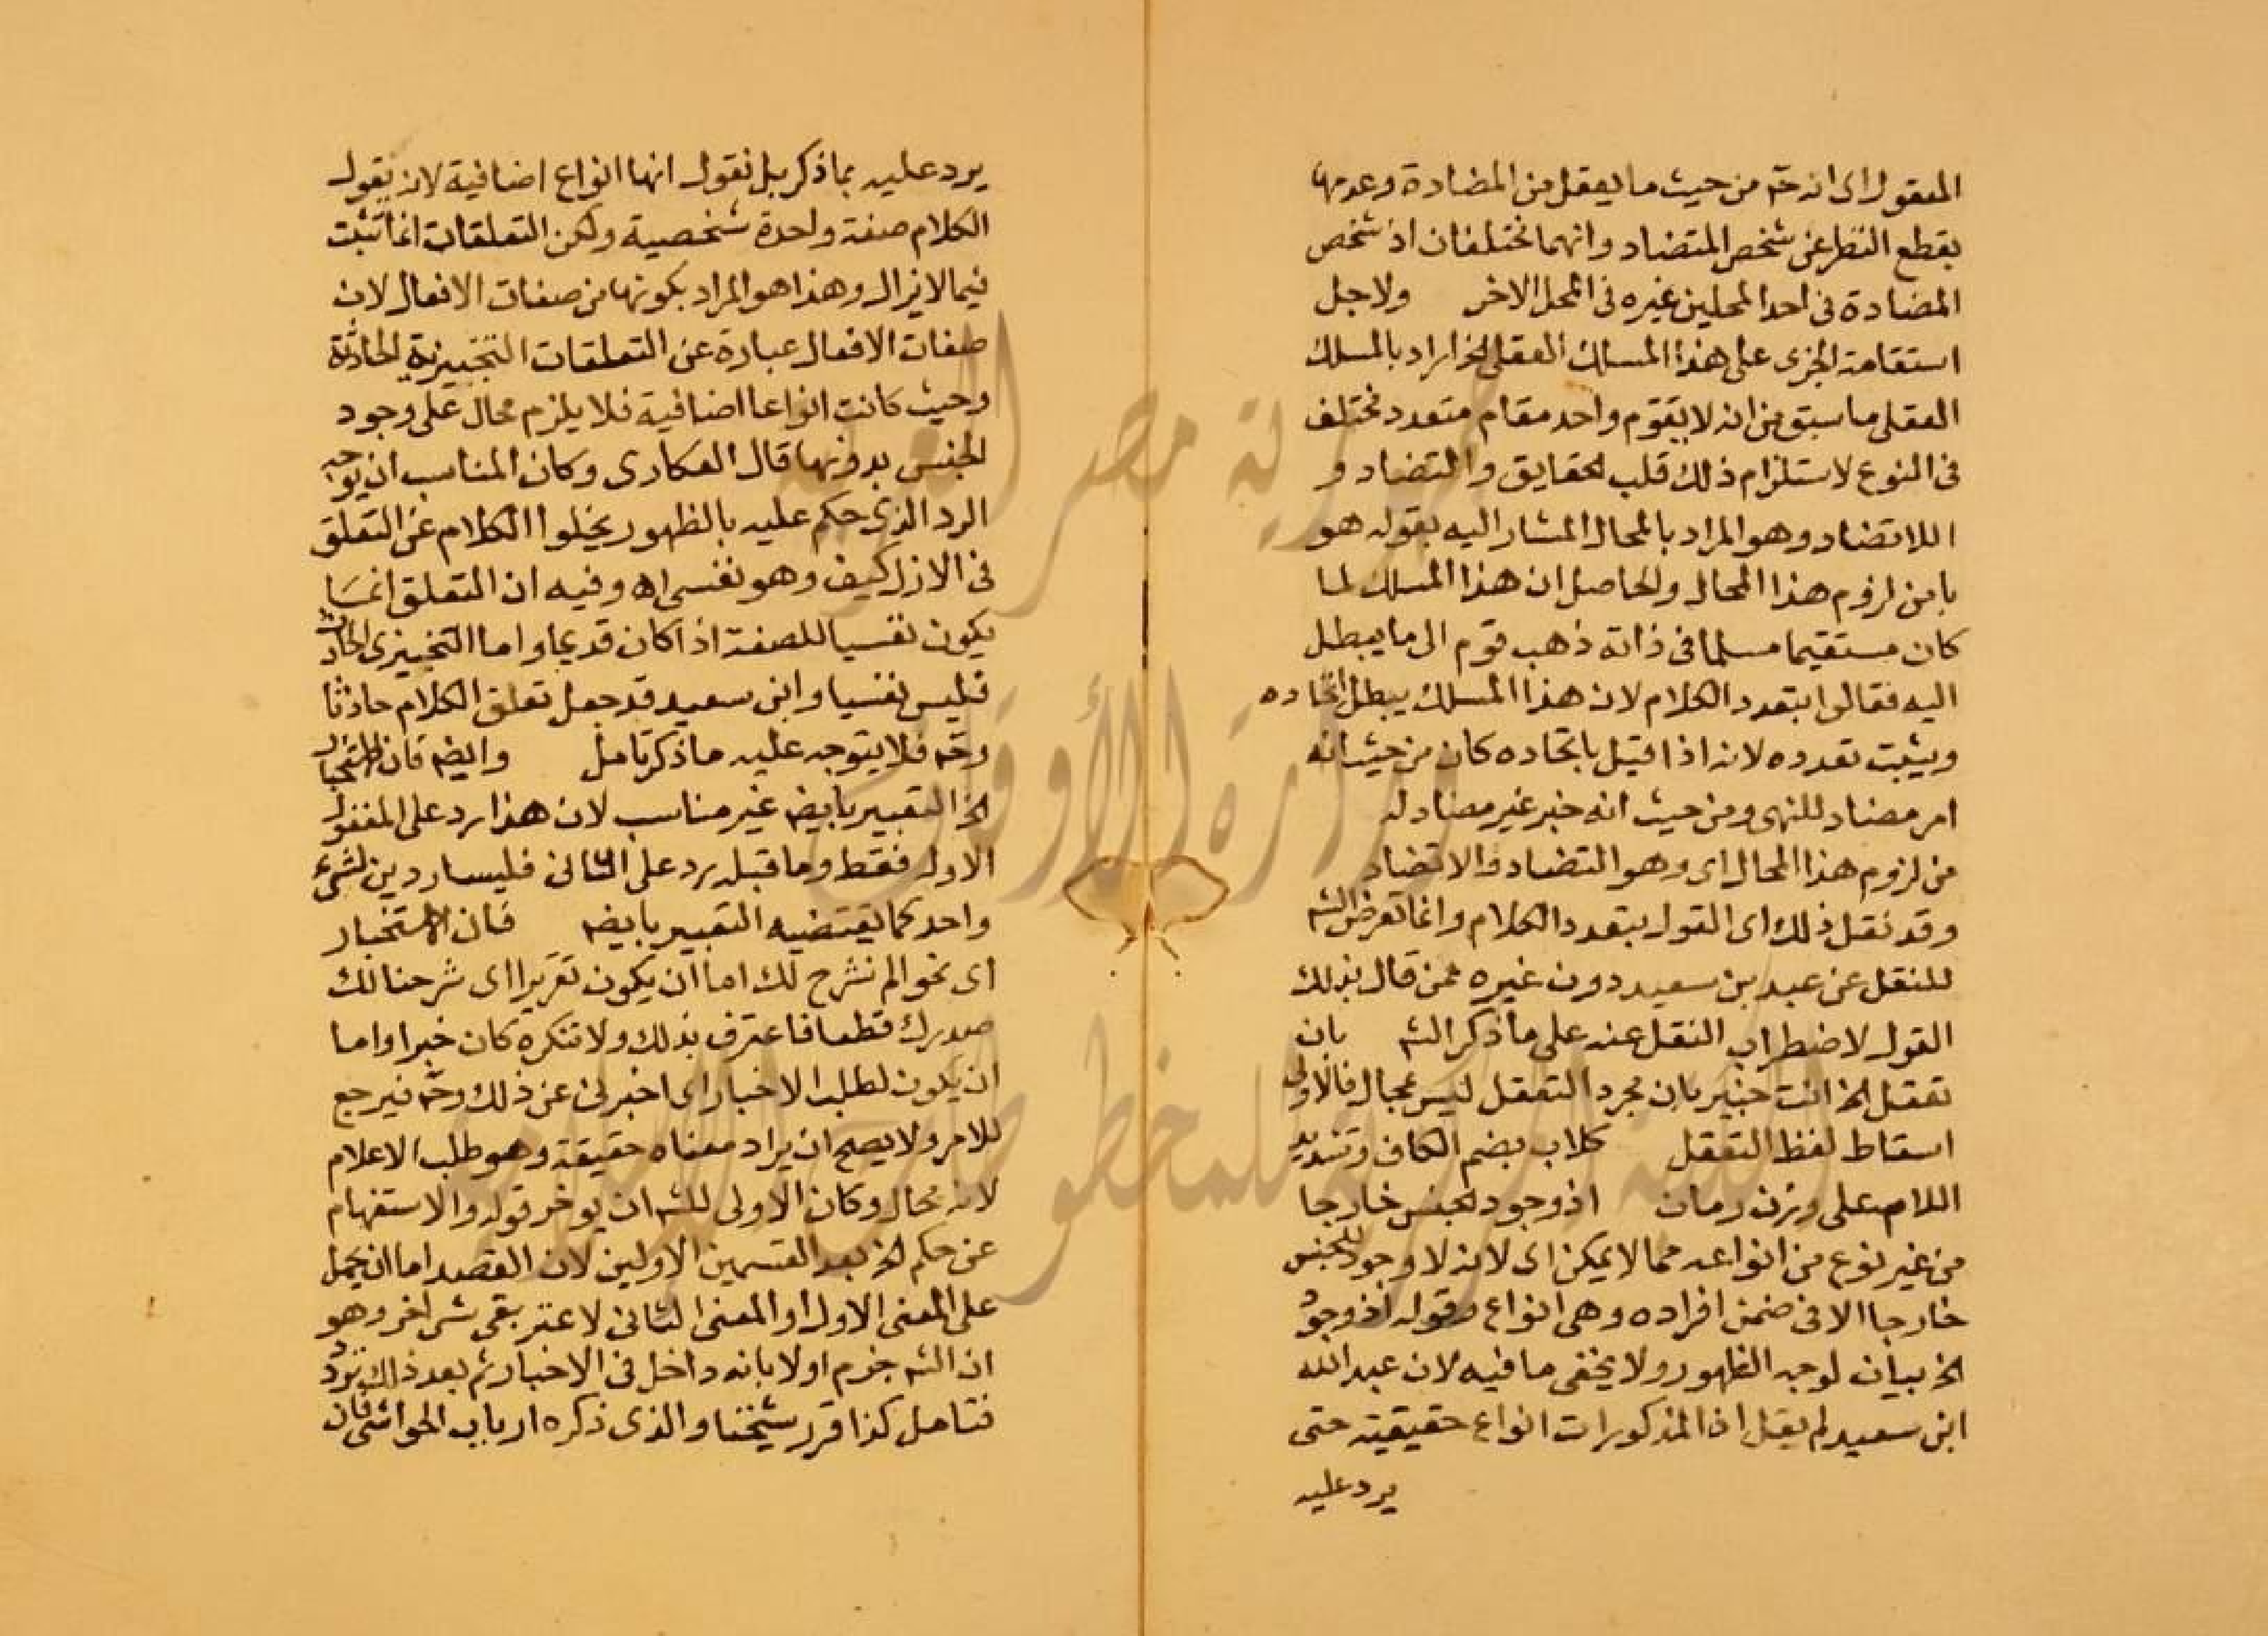 المنقول اى انه ح من حيث ما يعقل من المضادة وعدمها
بقطع النظر عن شخص المتضاد وانهما مختلفان اذ شخص
المضادة فى احد المحلين غيره فى المحل الاخر ولاجل
استقامة الجرى على هذا المسلك العقلى الخ اراد بالمسلك
العقلى ما سبق من انه لا يقوم واحد مقام متعدد مختلف
فى النوع لاستلزام ذلك قلب الحقايق والتضاد و
اللاتضاد وهو المراد بالمحال المشار اليه بقوله هو
با من لزوم هذا المحال والحاصل ان هذا المسلك لما
كان مستقيما مسلما فى ذاته ذهب قوم الى ما يبطل
اليه فقالوا بتعدد الكلام لان هذا المسلك يبطل اتحاده
ويثبت تعدده لانه اذا قيل باتحاده كان من حيث انه
امر مضاد للنهى ومن حيث انه خبر غير مضاد له
من لزوم هذا المحال اى وهو التضاد والاتضاد
وقد نقل ذلك اى القول بتعدد الكلام وانما تعرض الشه
للنقل عن عبد بن سعيد دون غيره ممن قال بذلك
القول لاضطراب النقل عنه على ما ذكر الشه بان
تعقل الخ انت خبير بان مجرد التعقل ليس بمحال فالاولى
اسقاط لفظ التعقل كلاب بضم الكاف وتشديد
اللام على وزن رمان اذ وجود الجنس خارجا
من غير نوع من انواعه مما لا يمكن اى لانه لا وجود للجنس
خارجا الا فى ضمن افراده وهى انواع وقوله اذ وجود
الخ بيان لوجه الظهور ولا يخفى ما فيه لان عبد الله
ابن سعيد لم يقل ان المذكورات انواع حقيقية حتى
يرد عليه
يرد عليه بما ذكر بل نقول انها انواع اضافية لانه يقول
الكلام صفة واحدة شخصية ولكن التعلقات انما تثبت
فيما لا يزال وهذا هو المراد بكونها من صفات الافعال لان
صفات الافعال عبارة عن التعلقات التنجيزية الحادثة
وحيث كانت انواعا اضافية فلا يلزم محال على وجود
الجنس بدونها قال العكارى وكان المناسب ان يوجه
الرد الذى حكم عليه بالظهور بخلوا الكلام عن التعلق
فى الازل كيف وهو نفسى اه وفيه ان التعلق انما
يكون نفسيا للصفة اذا كان قديما واما التنجيزى الحادث
فليس نفسيا وابن سعيد قد جعل تعلق الكلام حادثا
وح فلا يتوجه عليه ما ذكر تامل وايضه فان الاستخبار
الخ التعبير بايضه غير مناسب لان هذا رد على المنقول
الاول فقط وما قبله يرد على الثانى فليسا ردين لشىء
واحد كما يقتضيه التعبير بايضه فان الاستخبار
اى نحو الم نشرح لك اما ان يكون تقريرا اى شرحنا لك
صدرك قطعا فاعترف بذلك ولا تنكره كان خبرا واما
ان يكون لطلب الاخبار اى اخبرنى عن ذلك وح فيرجع
للامر ولا يصح ان يراد معناه حقيقة وهو طلب الاعلام
لانه محال وكان الاولى للشه ان يوخر قوله والاستفهام
عن حكم الخ بعد القسمين الاولين لان القصد اما ان يحمل
على المعنى الاول او المعنى الثانى لا عتر بقى شى اخر وهو
ان الشه جزم اولا بانه داخل فى الاخبار ثم بعد ذلك تردد
فتامل كذا قرر شيخنا والذى ذكره ارباب الحواشى فان
جمهورية مصر العربية
وزارة الأوقاف
المكتبة المركزية للمخطوطات الإسلامية